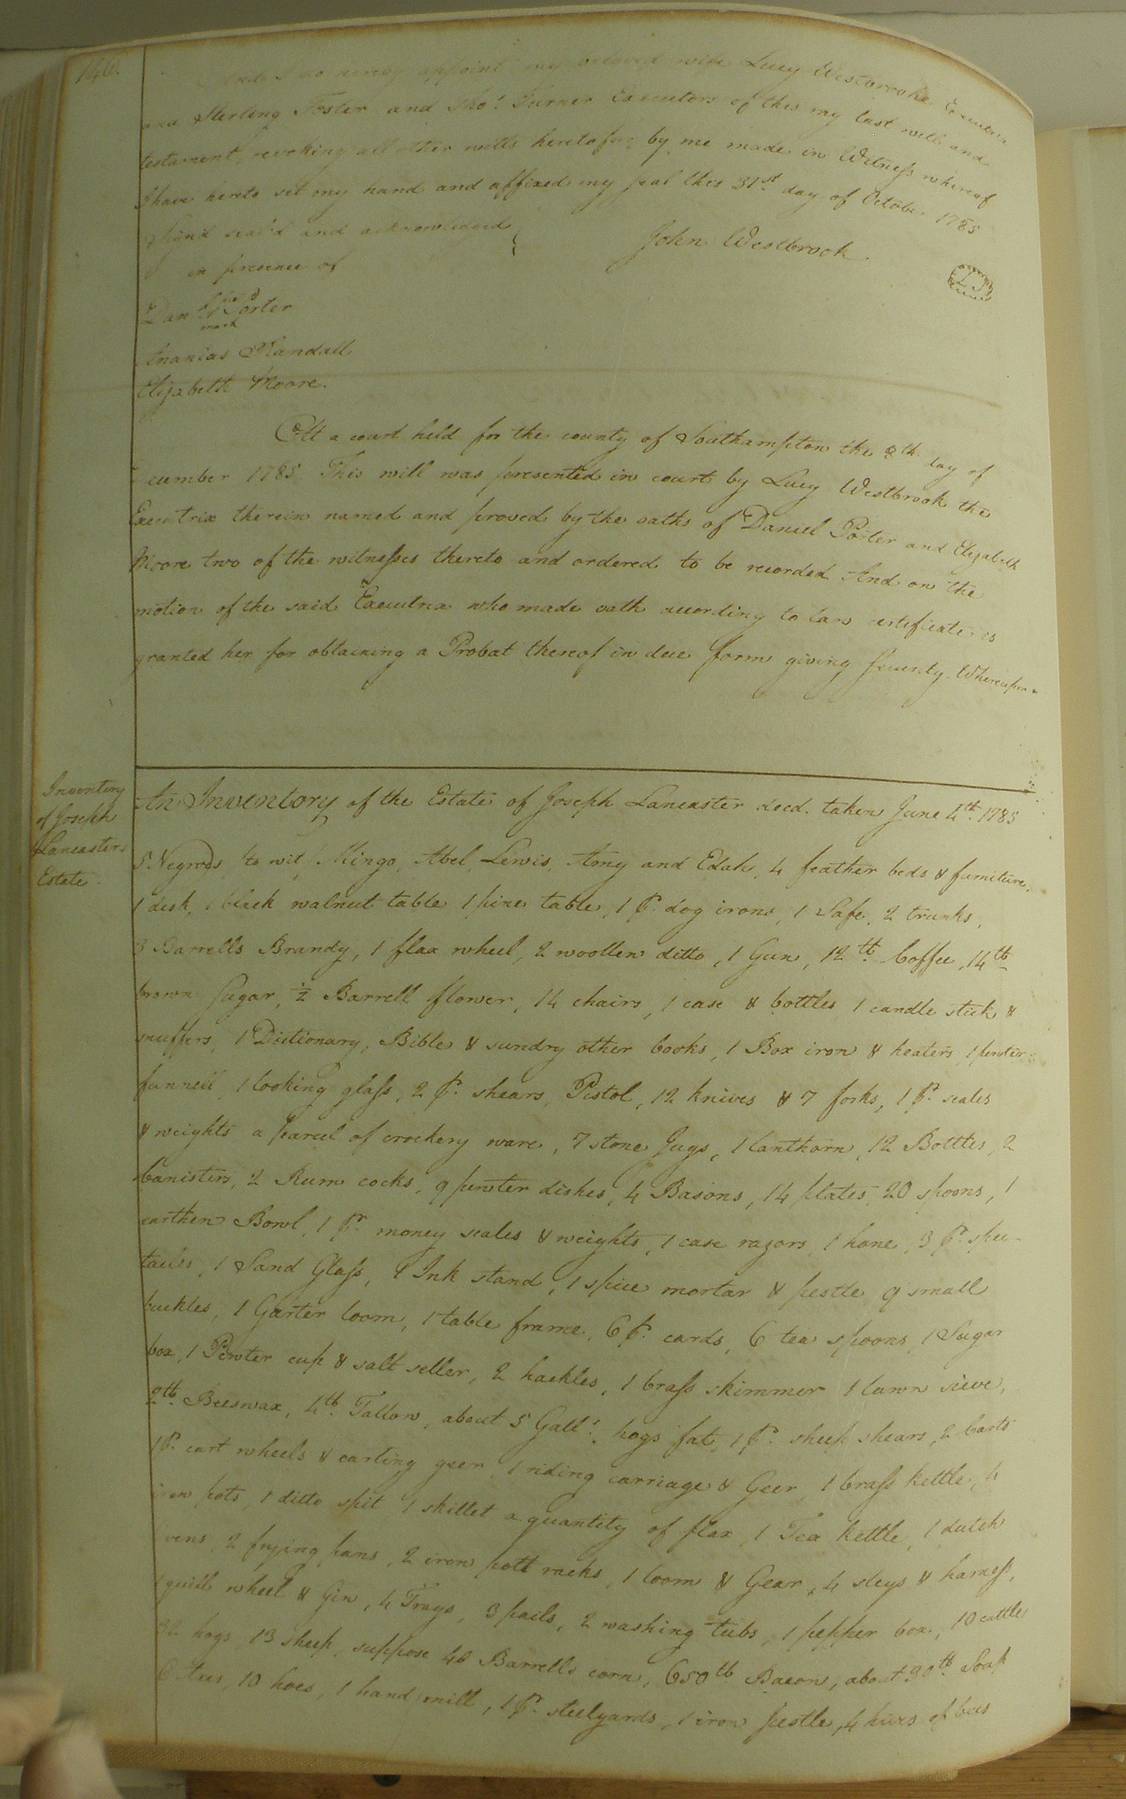 146.
And I do hereby appoint my beloved wife Lucy Westbrooke Executrix
and Sterling Foster and Thos. Turner Executors of this my last will and
testament, revoking all other wills heretofore by me made in Witness whereof
I have hereto set my hand and affixed my seal this 31st day of October 1785
Sign'd seal'd and acknowledged
John Westbrook
LS
in presence of
Danl. Porter
mark
Ananias Randall
Elizabeth Moore.
At a court held for the county of Southampton the 8th day of
cember 1785 This will was presented in court by Lucy Westbrook the
Executrix therein named and proved by the oaths of Daniel Porter and Elizabeth
Moore two of the witnesses thereto and ordered to be recorded And on the
motion of the said Executrix who made oath according to law certificate is
granted her for obtaining a Probat thereof in due form giving security. Whereupon
Inventory
of Joseph
Lancasters
Estate
An Inventory of the Estate of Joseph Lancaster decd. taken June 4th. 1785
5 Negroes to wit, Mingo, Abel, Lewis, Amy and Edah, 4 feather beds & furniture,
1 desk, 1 black walnut table 1 pine table, 1 pr. dog irons, 1 Safe, 2 trunks,
3 Barrells Brandy, 1 flax wheel, 2 woollen ditto, 1 Gun, 12 tt Coffee, 14 tt
brown Sugar, ½ Barrell flower, 14 chairs, 1 case & bottles 1 candle stick &
snuffers, 1 Dictionary, Bible & sundry other books, 1 Box iron & heaters 1 pewter
funnell, 1 looking glass, 2 pr. shears, Pistol, 12 knives & 7 forks, 1 pr. scales
& weights a parcel of crockery ware, 7 stone Jugs, 1 lanthorn, 12 Bottles, 2
Canisters, 2 Rum cocks, 9 pewter dishes, 4 Basons, 14 plates, 20 spoons, 1
earthen Bowl, 1 pr. money scales & weights, 1 case razors, 1 hone, 3 pr. spec-
tacles, 1 Sand Glass, 1 Ink stand, 1 spice mortar & pestle 9 small
buckles, 1 Garter loom, 1 table frame, 6 pr. cards, 6 tea spoons, 1 Sugar
box, 1 Pewter cup & salt seller, 2 hackles, 1 brass skimmer 1 lawn sieve,
2 tt. Beeswax, 4 tt. Tallow, about 5 Galls. hogs fat, 1 pr. sheep shears, 2 Carts
1 pr. cart wheels & carting geer 1 riding carriage & Geer, 1 brass kettle, 4
iron pots, 1 ditto spit 1 skillet a quantity of flax, 1 Tea kettle, 1 dutch
ovens, 2 frying pans, 2 iron pott racks, 1 loom & Gear, 4 sleys & harness,
1 quill wheel & Gin, 4 Trays, 3 pails, 2 washing tubs, 1 pepper box, 10 cattle
hogs, 13 sheep, suppose 40 Barrells corn, 650 tt Bacon, about 30 tt. Soap
6 Axes, 10 hoes, 1 hand mill, 1 pr. steelyards, 1 iron pestle, 4 hives of bees